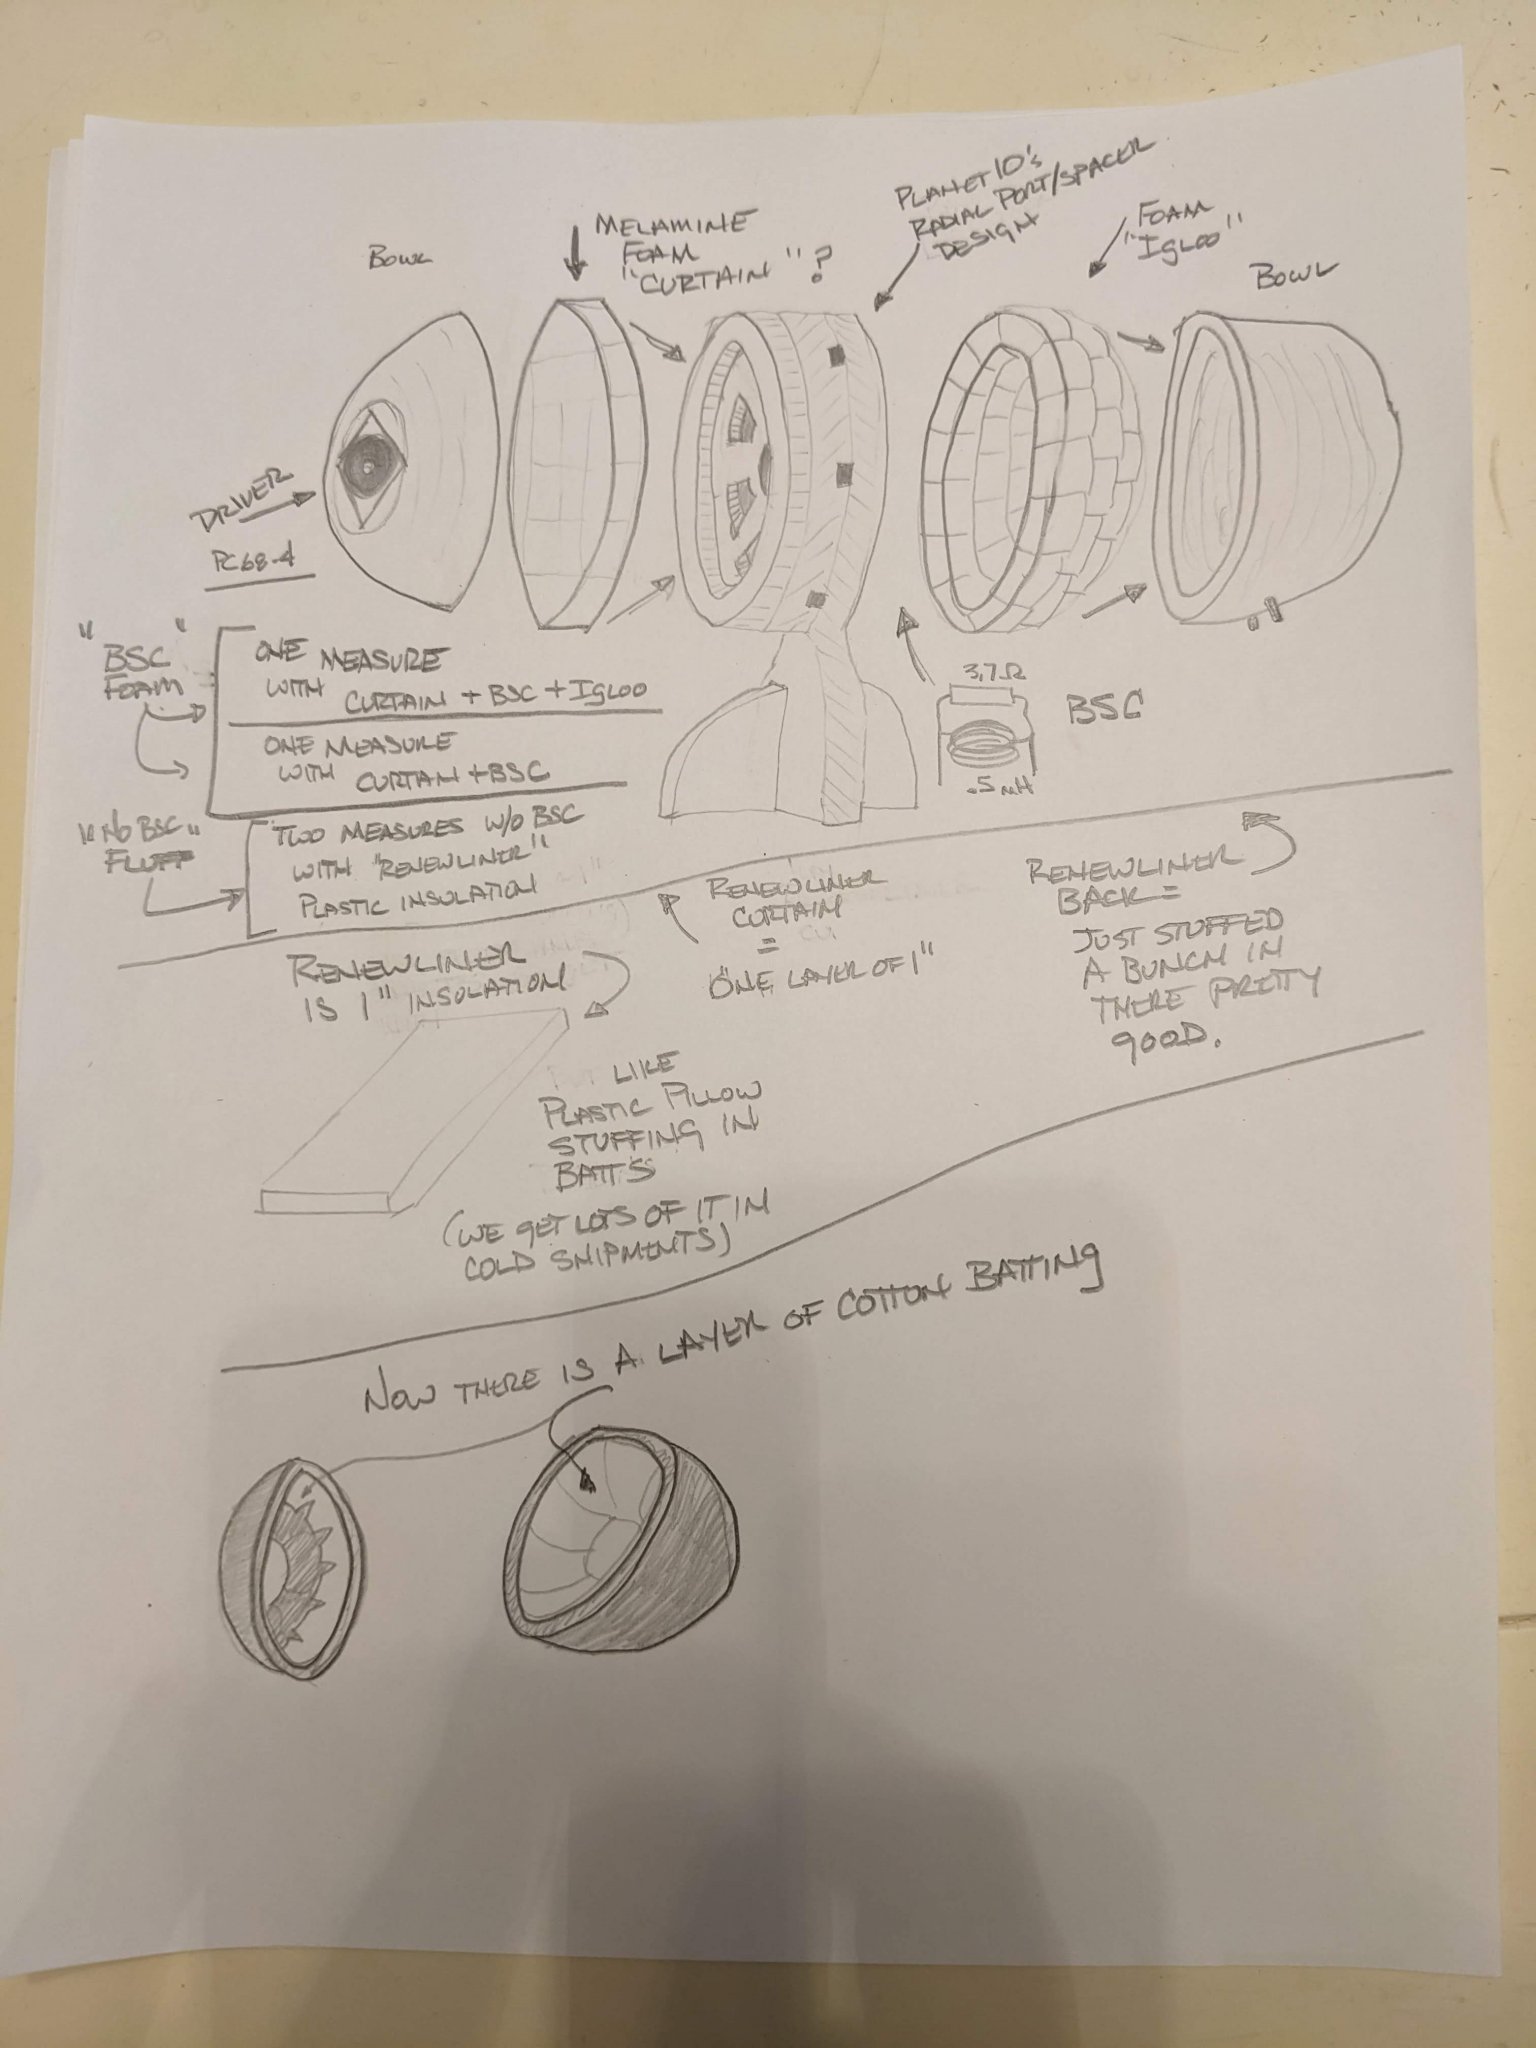 BOWL
MELAMINE
FOAM
"CURTAIN"?
PLANET 10's
RADIAL PORT/SPACER
DESIGN
FOAM
"IGLOO"
BOWL
DRIVER
PC68-4
"BSC"
FOAM
ONE MEASURE
WITH CURTAIN + BSC + IGLOO
ONE MEASURE
WITH CURTAIN + BSC
3.7Ω
BSC
.5mH
"NO BSC"
FLUFF
TWO MEASURES W/O BSC
WITH "RENEWLINER"
PLASTIC INSULATION
RENEWLINER
CURTAIN
=
ONE LAYER OF 1"
RENEWLINER
BACK =
JUST STUFFED
A BUNCH IN
THERE PRETTY
GOOD.
RENEWLINER
IS 1" INSULATION
LIKE
PLASTIC PILLOW
STUFFING IN
BATTS
(WE GET LOTS OF IT IN
COLD SHIPMENTS)
NOW THERE IS A LAYER OF COTTON BATTING